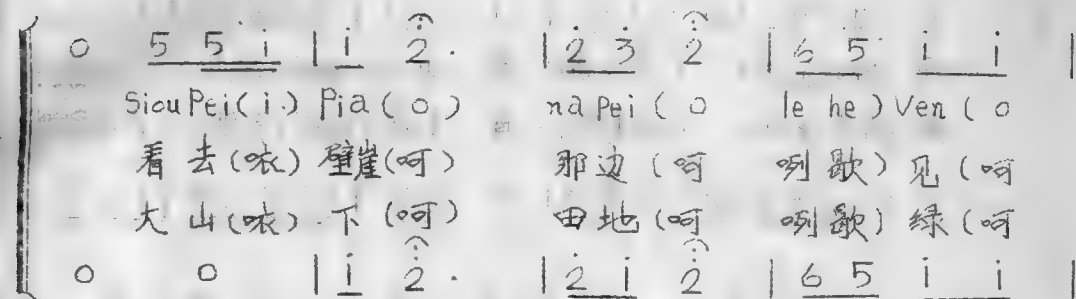 0 5 5 i | i 2̇ . | 2̇ 3̇ 2̇ | 6 5 i i |
Siou Pei ( i ) Pia ( o ) na Pei ( o le he ) Ven ( o
看 去 (哝) 壁崖 (呵) 那 边 (呵 咧 歌) 见 (呵
大 山 (哝) 下 (呵) 田 地 (呵 咧 歌) 绿 (呵
0 0 | i 2̇ . | 2̇ i 2̇ | 6 5 i i |